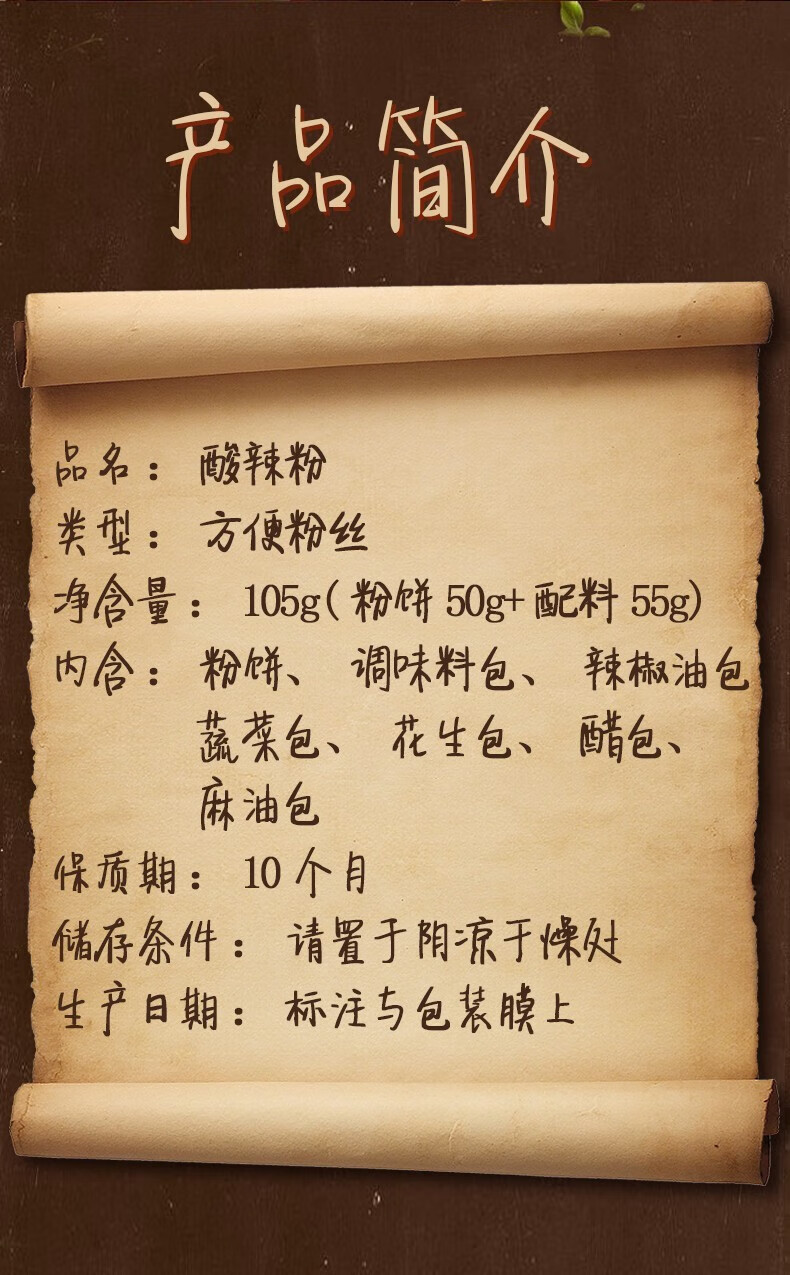 产品简介
品名：酸辣粉
类型：方便粉丝
净含量：105g(粉饼50g+配料55g)
内含：粉饼、调味料包、辣椒油包
蔬菜包、花生包、醋包、
麻油包
保质期：10个月
储存条件：请置于阴凉干燥处
生产日期：标注与包装膜上